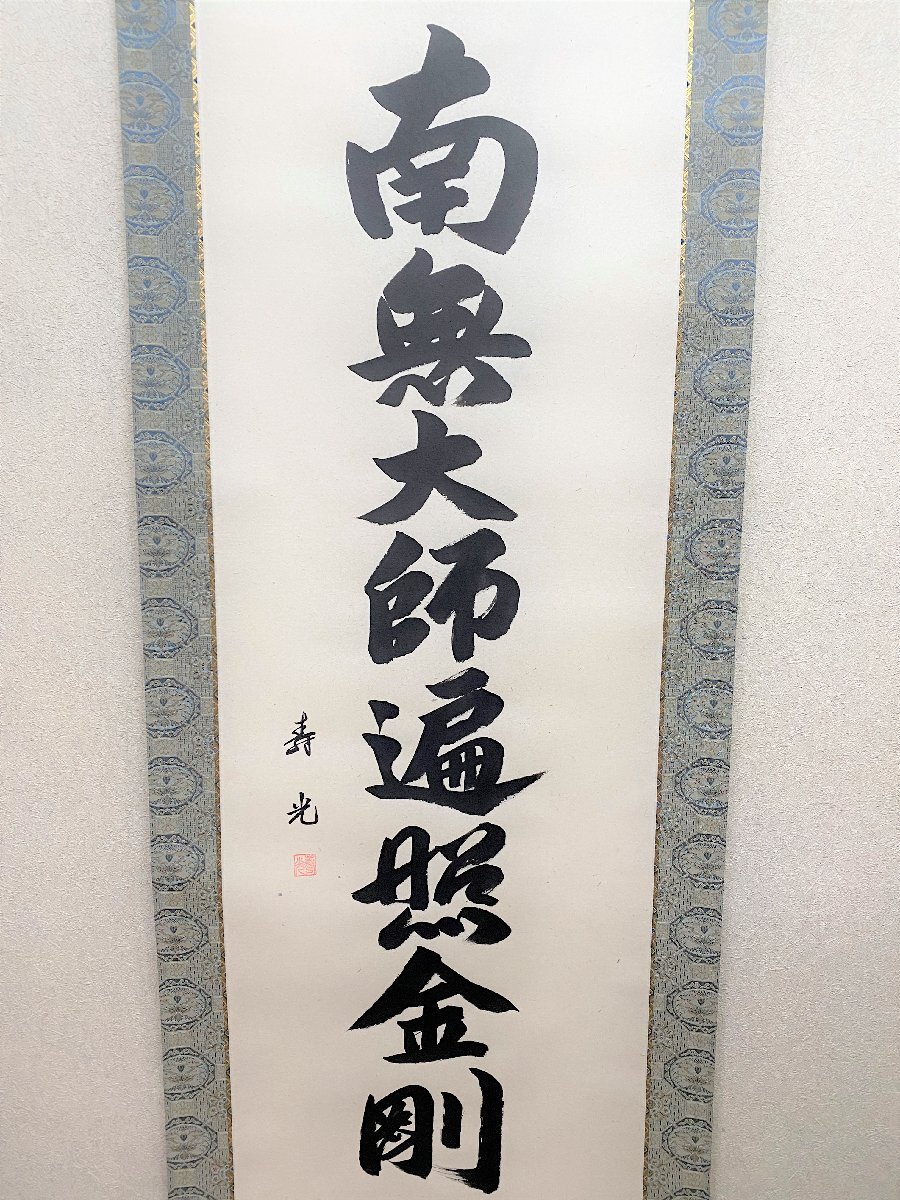 南無大師遍照金剛
壽光